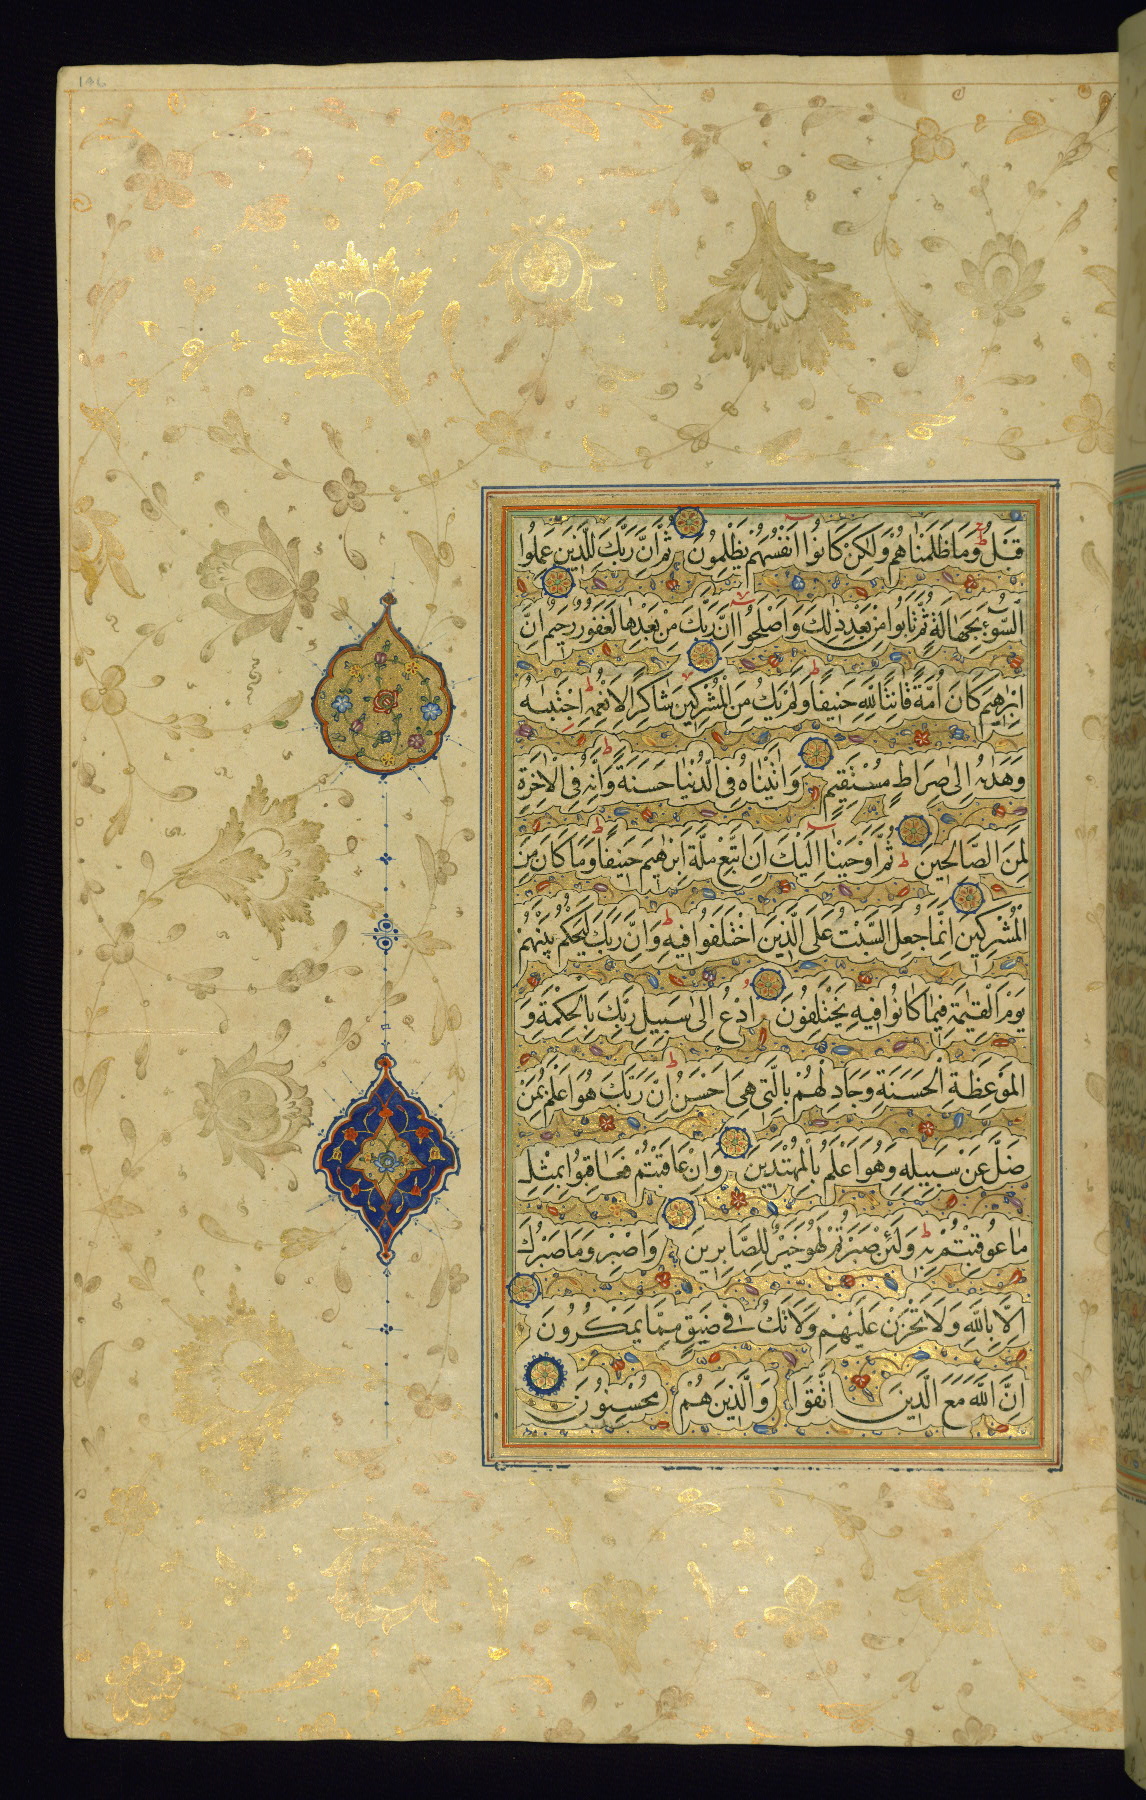 146
قَبْلُ وَمَا ظَلَمْنَاهُمْ وَلٰكِنْ كَانُوا اَنْفُسَهُمْ يَظْلِمُونَ ثُمَّ اِنَّ رَبَّكَ لِلَّذِينَ عَمِلُوا
السُّوءَ بِجَهَالَةٍ ثُمَّ تَابُوا مِنْ بَعْدِ ذٰلِكَ وَاَصْلَحُوا اِنَّ رَبَّكَ مِنْ بَعْدِهَا لَغَفُورٌ رَحِيمٌ اِنَّ
اِبْرٰهِيمَ كَانَ اُمَّةً قَانِتًا لِلّٰهِ حَنِيفًا وَلَمْ يَكُ مِنَ الْمُشْرِكِينَ شَاكِرًا لِاَنْعُمِهِ اِجْتَبٰيهُ
وَهَدٰيهُ اِلٰى صِرَاطٍ مُسْتَقِيمٍ وَاٰتَيْنَاهُ فِي الدُّنْيَا حَسَنَةً وَاِنَّهُ فِي الْاٰخِرَةِ
لَمِنَ الصَّالِحِينَ ثُمَّ اَوْحَيْنَا اِلَيْكَ اَنِ اتَّبِعْ مِلَّةَ اِبْرٰهِيمَ حَنِيفًا وَمَا كَانَ مِنَ
الْمُشْرِكِينَ اِنَّمَا جُعِلَ السَّبْتُ عَلَى الَّذِينَ اخْتَلَفُوا فِيهِ وَاِنَّ رَبَّكَ لَيَحْكُمُ بَيْنَهُمْ
يَوْمَ الْقِيٰمَةِ فِيمَا كَانُوا فِيهِ يَخْتَلِفُونَ اُدْعُ اِلٰى سَبِيلِ رَبِّكَ بِالْحِكْمَةِ وَ
الْمَوْعِظَةِ الْحَسَنَةِ وَجَادِلْهُمْ بِالَّتِي هِيَ اَحْسَنُ اِنَّ رَبَّكَ هُوَ اَعْلَمُ بِمَنْ
ضَلَّ عَنْ سَبِيلِهِ وَهُوَ اَعْلَمُ بِالْمُهْتَدِينَ وَاِنْ عَاقَبْتُمْ فَعَاقِبُوا بِمِثْلِ
مَا عُوقِبْتُمْ بِهِ وَلَئِنْ صَبَرْتُمْ لَهُوَ خَيْرٌ لِلصَّابِرِينَ وَاصْبِرْ وَمَا صَبْرُكَ
اِلَّا بِاللّٰهِ وَلَا تَحْزَنْ عَلَيْهِمْ وَلَا تَكُ فِي ضَيْقٍ مِمَّا يَمْكُرُونَ
اِنَّ اللّٰهَ مَعَ الَّذِينَ اتَّقَوْا وَالَّذِينَ هُمْ مُحْسِنُونَ